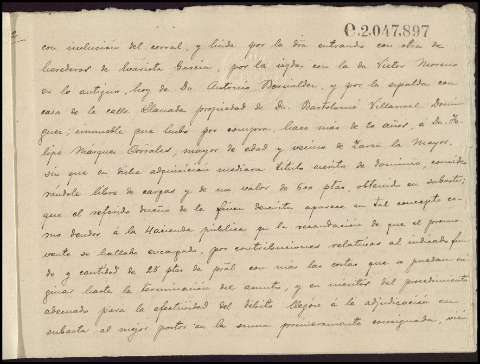 C.2.047.897
con inclusion del corral, y linda por la dra entrando con otra de
herederos de Evarista Garcia, por la izqda con la de Victor Moreno
en lo antiguo, hoy de Dn Antonio y por la espalda con
casa de la calle Llanada propiedad de Dn Bartolomé Villarreal Domin
guez; inmueble que hubo por compra, hace mas de 20 años, á Dn Fe
lipe Marquez Corrales, mayor de edad y vecino de Zarza la Mayor,
sin que en dicha adquisicion mediara titulo escrito de dominio, conside
randola libre de cargas y de un valor de 600 ptas, obtenida en subasta;
que el referido dueño de la finca descrita aparece en tal concepto co
mo deudor á la Hacienda pública en la recaudacion de que el promo
vente se hallaba encargado, por contribuciones relativas al indicado fun
do y cantidad de 23 ptas de pral con mas las costas que se puedan ori
ginar hasta la terminacion del asunto, y en meritos del procedimiento
adecuado para la efectividad del débito llegóse á la adjudicacion en
subasta al mejor postor en la suma primeramente consignada,